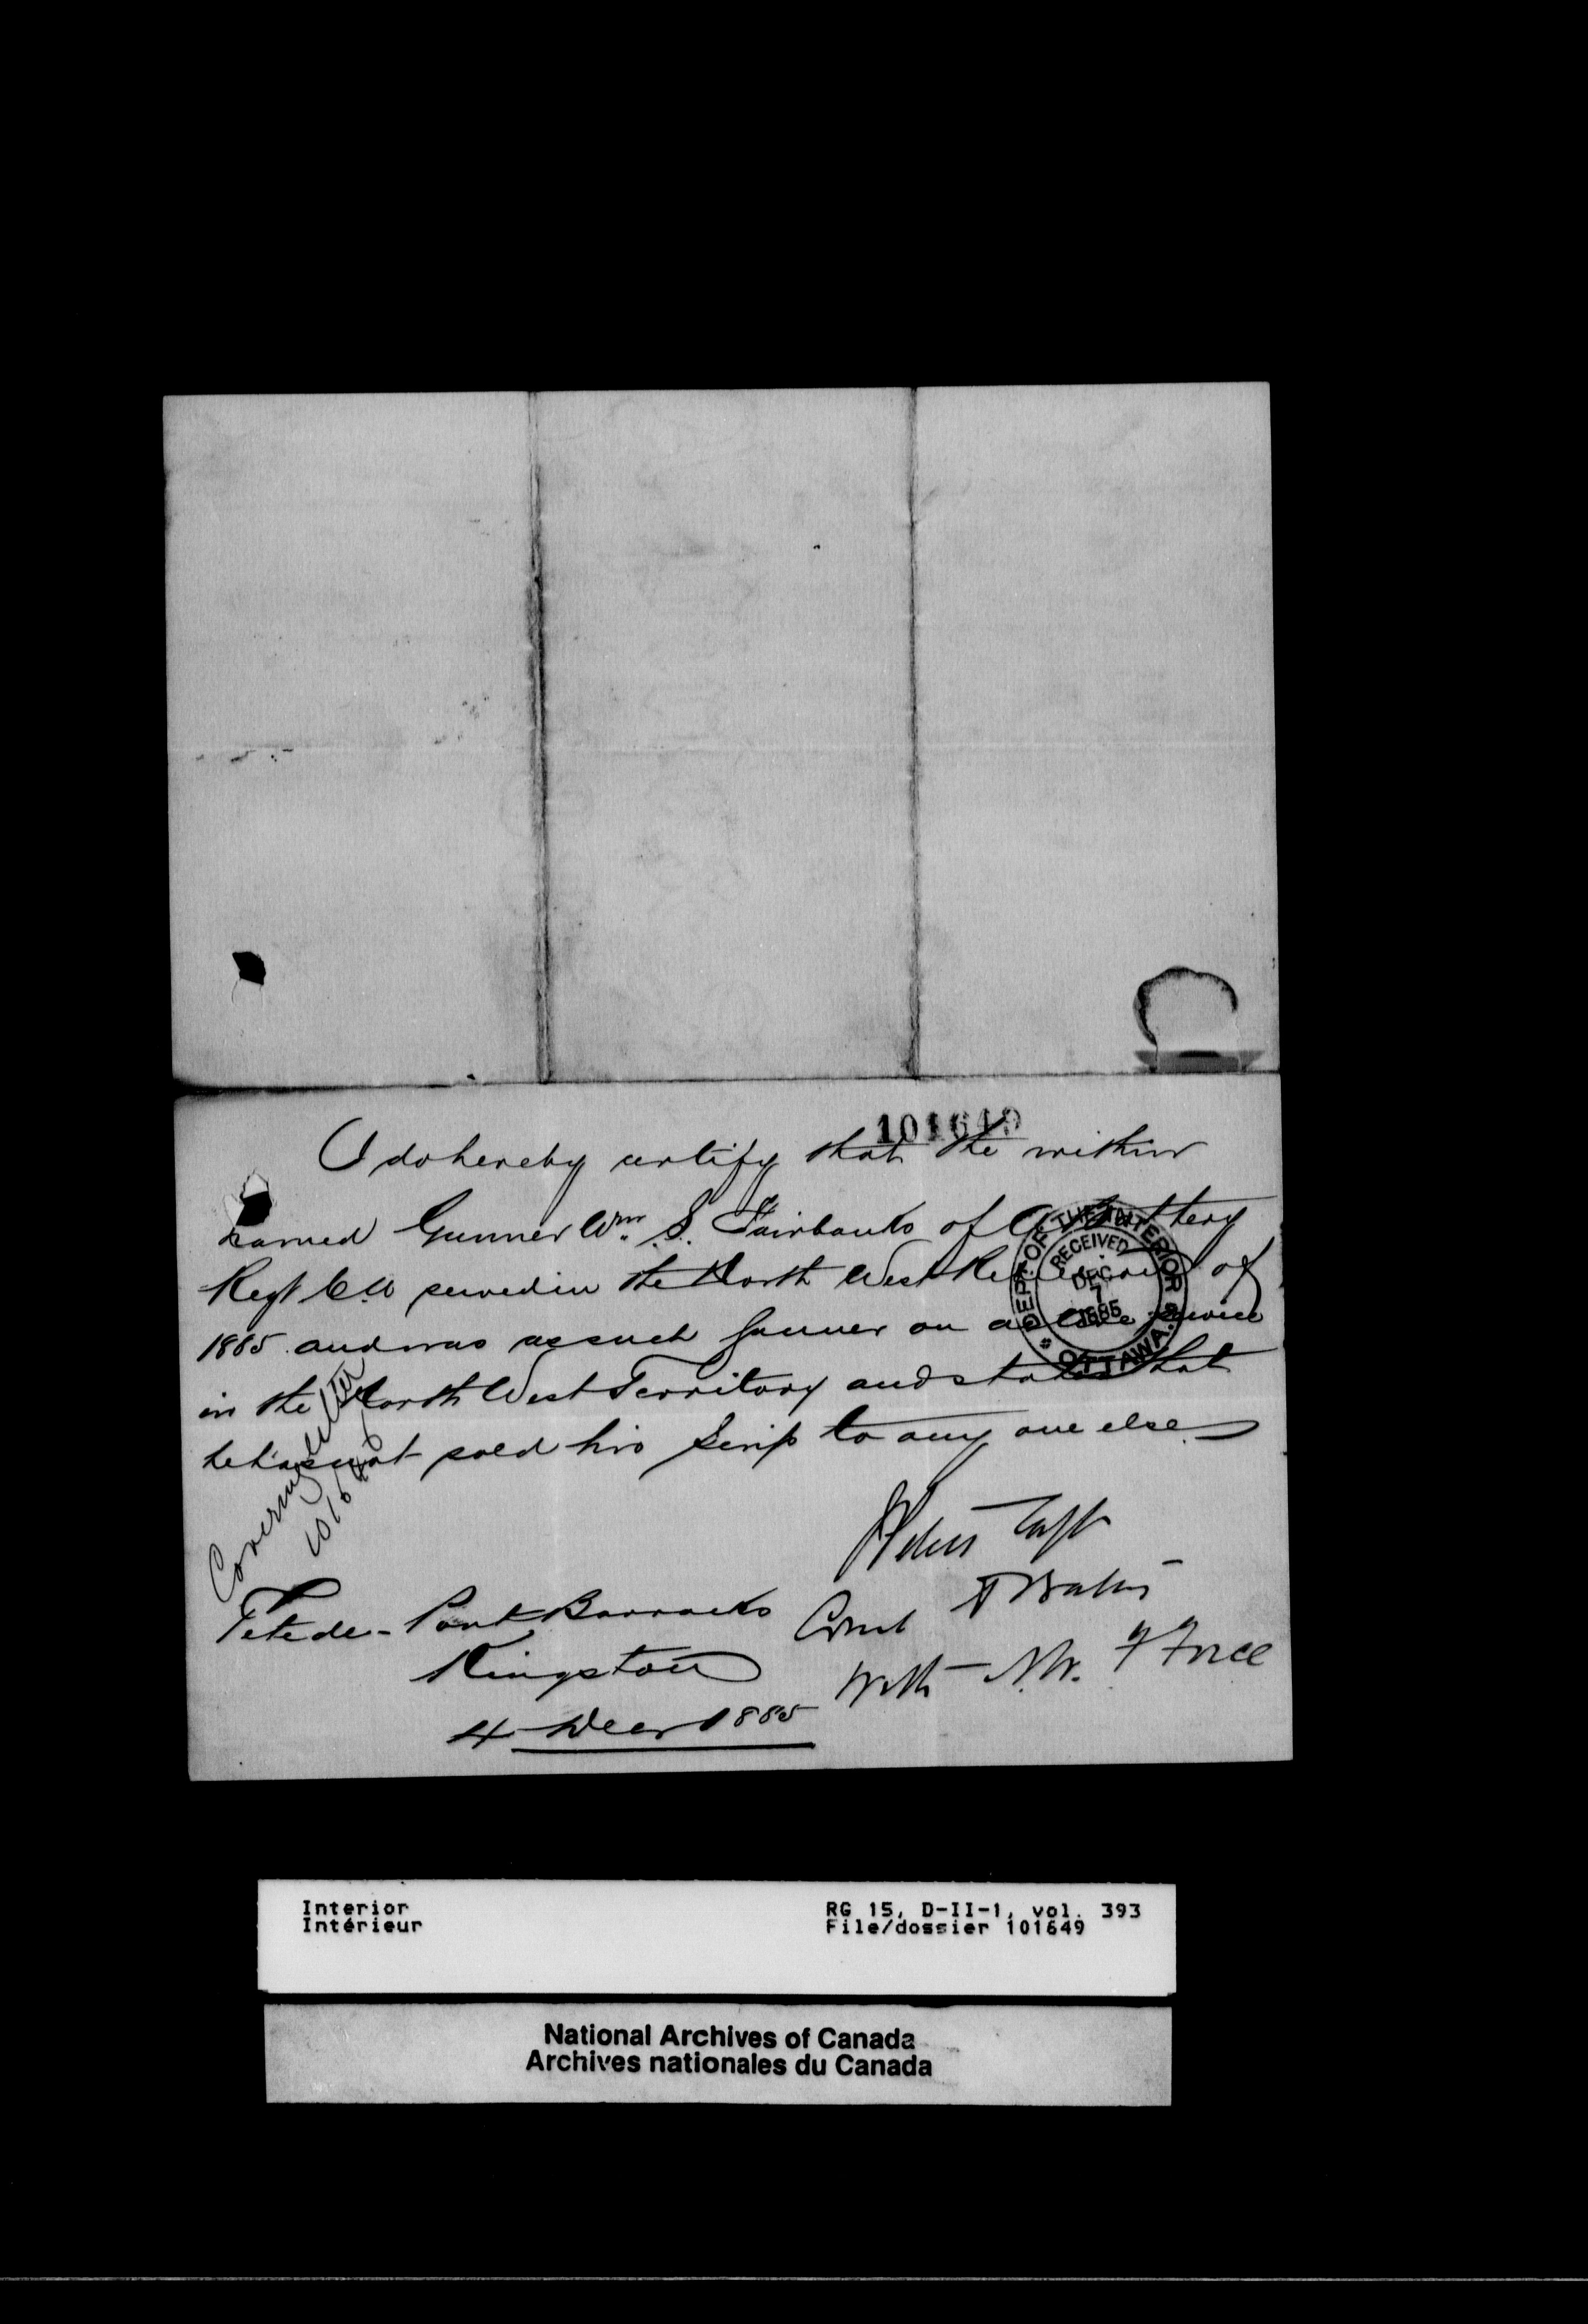 101649
I do hereby certify that the within
named Gunner Wm. S. Fairbanks of A Battery
Regt C.A. served in the North West Rebellion of
1885. and was as such Gunner on active service
in the North West Territory and states that
he has not sold his Scrip to any one else
DEPT. OF THE INTERIOR
RECEIVED
DEC
7
1885
OTTAWA.
Covering letter
1016
Capt
Comd A Battery
With N.W. F Force
Tete de - Pont Barracks
Kingston
4 Decr 1885
Interior RG 15, D-II-1, vol. 393
Intérieur File/dossier 101649
National Archives of Canada
Archives nationales du Canada